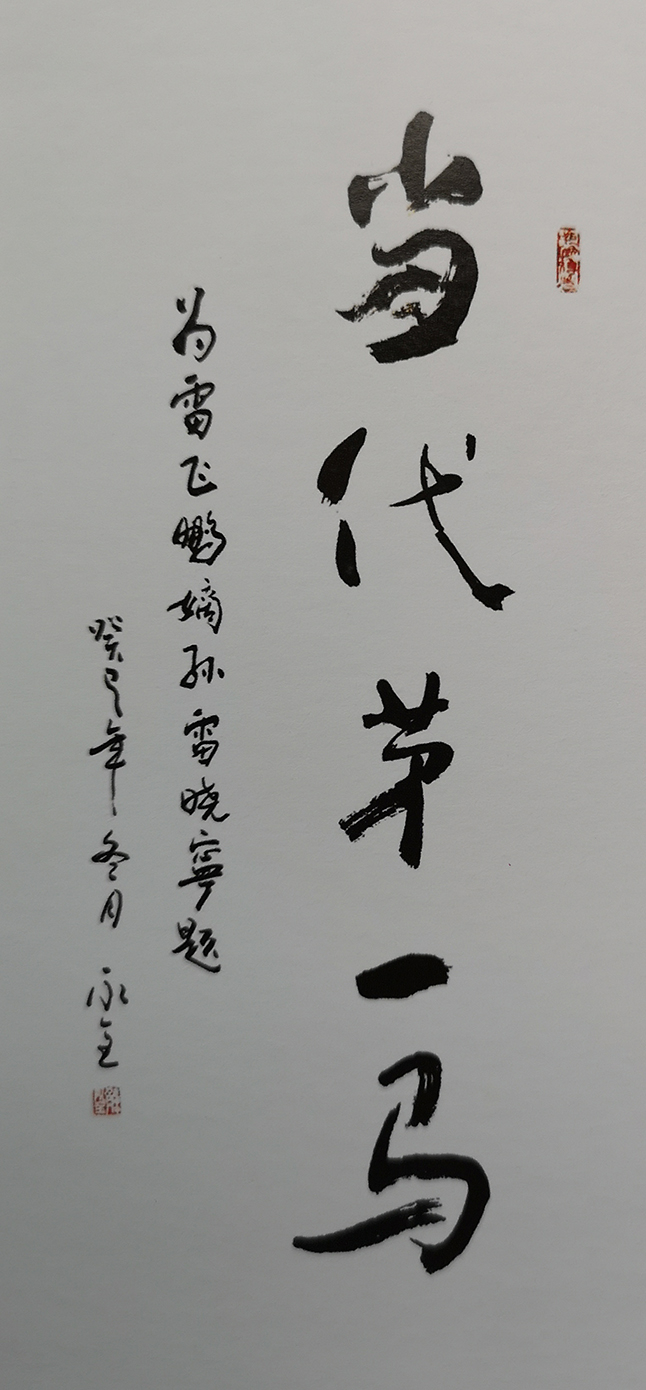 当代苐一马
为雷飞鹏嫡孙雷晓宁题
癸巳年冬月 永全